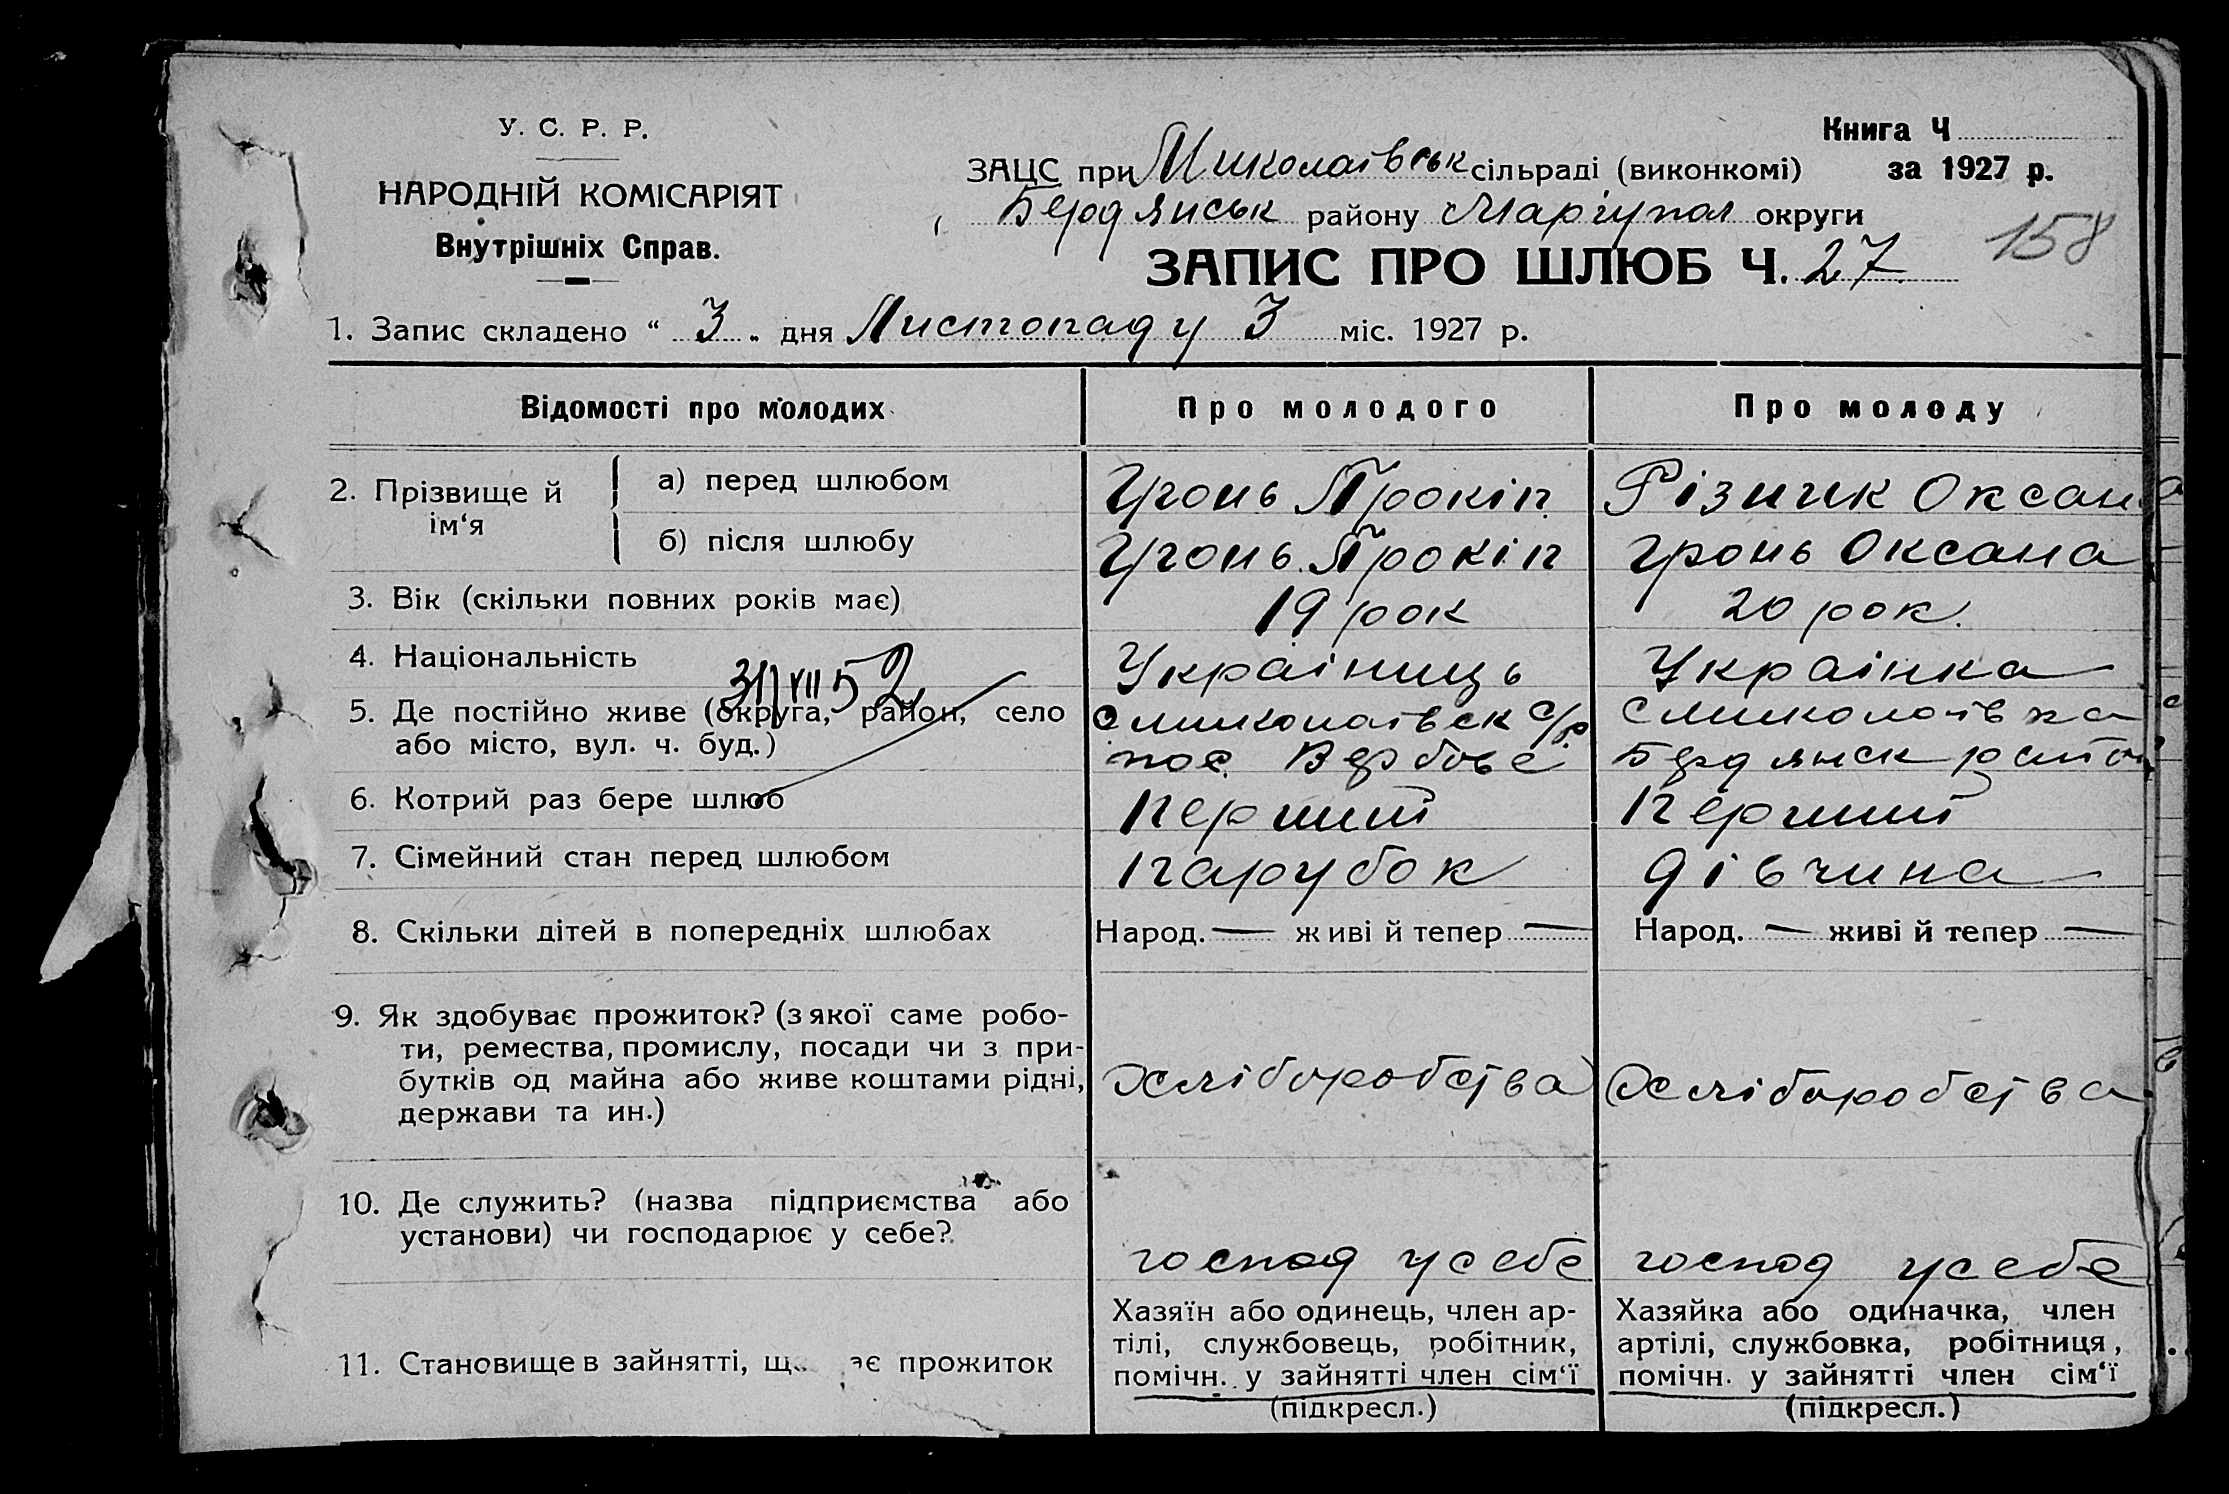 У. С. Р. Р.
НАРОДНІЙ КОМІСАРІЯТ
Внутрішніх Справ.
Книга Ч
за 1927 р.
ЗАЦС при Миколаївськ сільраді (виконкомі)
Бердянськ району Маріупол округи
158
ЗАПИС ПРО ШЛЮБ Ч. 27
1. Запис складено “ 3 „ дня Листопаду 3 міс. 1927 р.
Відомості про молодих
Про молодого
Про молоду
2. Прізвище й ім‘я
а) перед шлюбом
Гронь Прокіп
Різник Оксана
б) після шлюбу
Гронь Прокіп
Гронь Оксана
3. Вік (скільки повних років має)
19 рок
20 рок.
4. Національність
Украіниць
Украінка
31 VII 52
5. Де постійно живе (округа, район, село
або місто, вул. ч. буд.)
с Миколаівск с/р
пос. Вербове
с Миколаівка
Бердянск район
6. Котрий раз бере шлюб
Перший
Перший
7. Сімейний стан перед шлюбом
парубок
дівчина
8. Скільки дітей в попередніх шлюбах
Народ. — живі й тепер —
Народ. — живі й тепер —
9. Як здобуває прожиток? (з якої саме робо-
ти, ремества, промислу, посади чи з при-
бутків од майна або живе коштами рідні,
держави та ин.)
Хліборобства
Хліборобства
10. Де служить? (назва підприємства або
установи) чи господарює у себе?
господ у себе
господ у себе
11. Становище в зайнятті, щ ає прожиток
Хазяїн або одинець, член ар-
тілі, службовець, робітник,
помічн. у зайнятті член сім‘ї
(підкресл.)
Хазяйка або одиначка, член
артілі, службовка, робітниця,
помічн. у зайнятті член сім‘ї
(підкресл.)